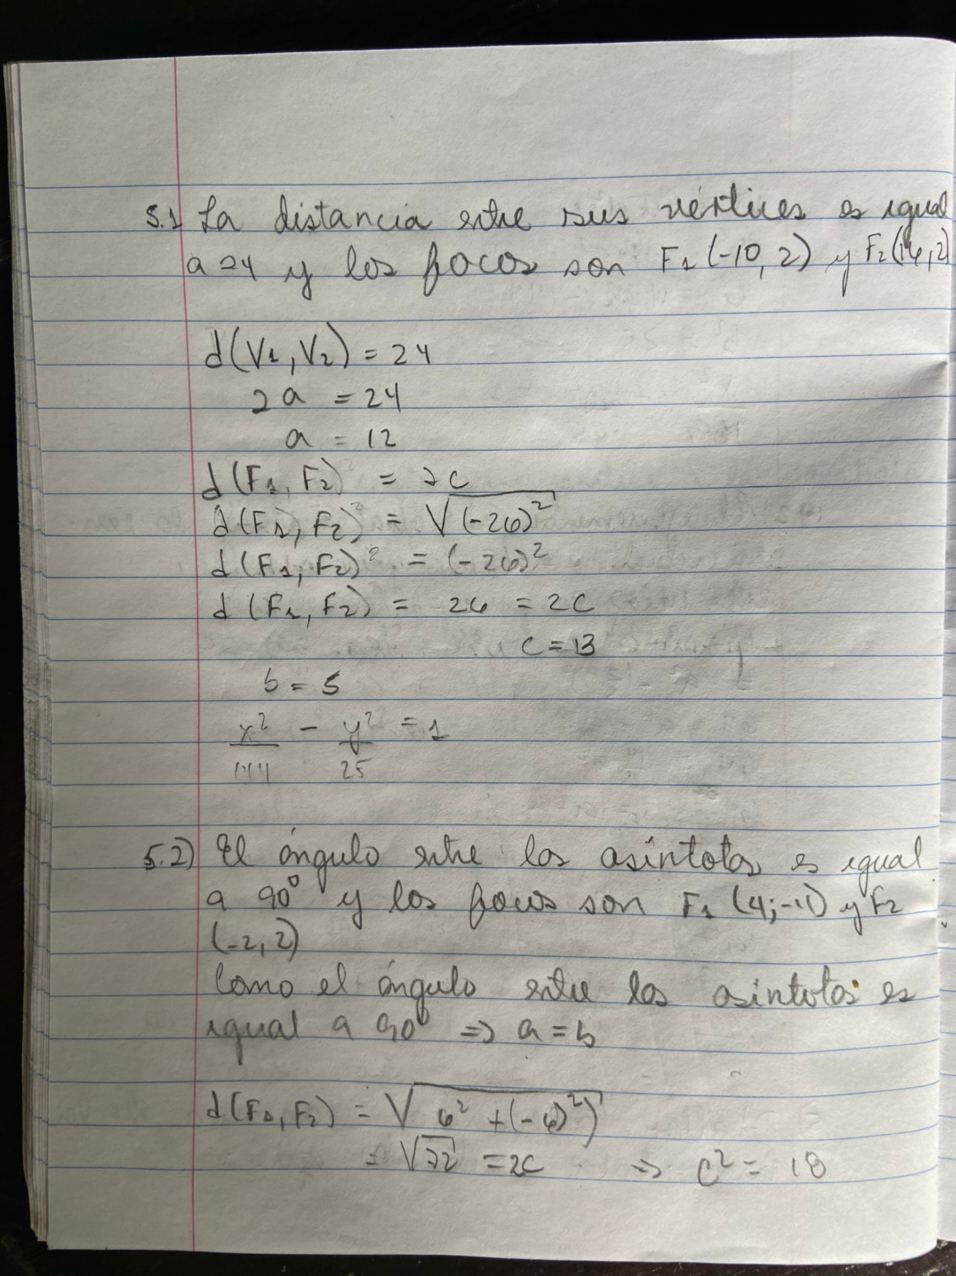 5.1 La distancia entre sus vértices es igual
a 24 y los focos son F₁(-10, 2) y F₂(16,2)
d(V₁, V₂) = 24
2a = 24
a = 12
d(F₁, F₂) = 2c
d(F₁, F₂)² = √(-26)²
d(F₁, F₂)² = (-26)²
d(F₁, F₂) = 26 = 2c
c = 13
b = 5
x²/144 - y²/25 = 1
5.2) El ángulo entre las asíntotas es igual
a 90° y los focos son F₁ (4;-4) y F₂
(-2, 2)
Como el ángulo entre las asíntotas es
igual a 90° => a = b
d(F₁, F₂) = √(6² + (-6)²)
= √72 = 2c => c² = 18